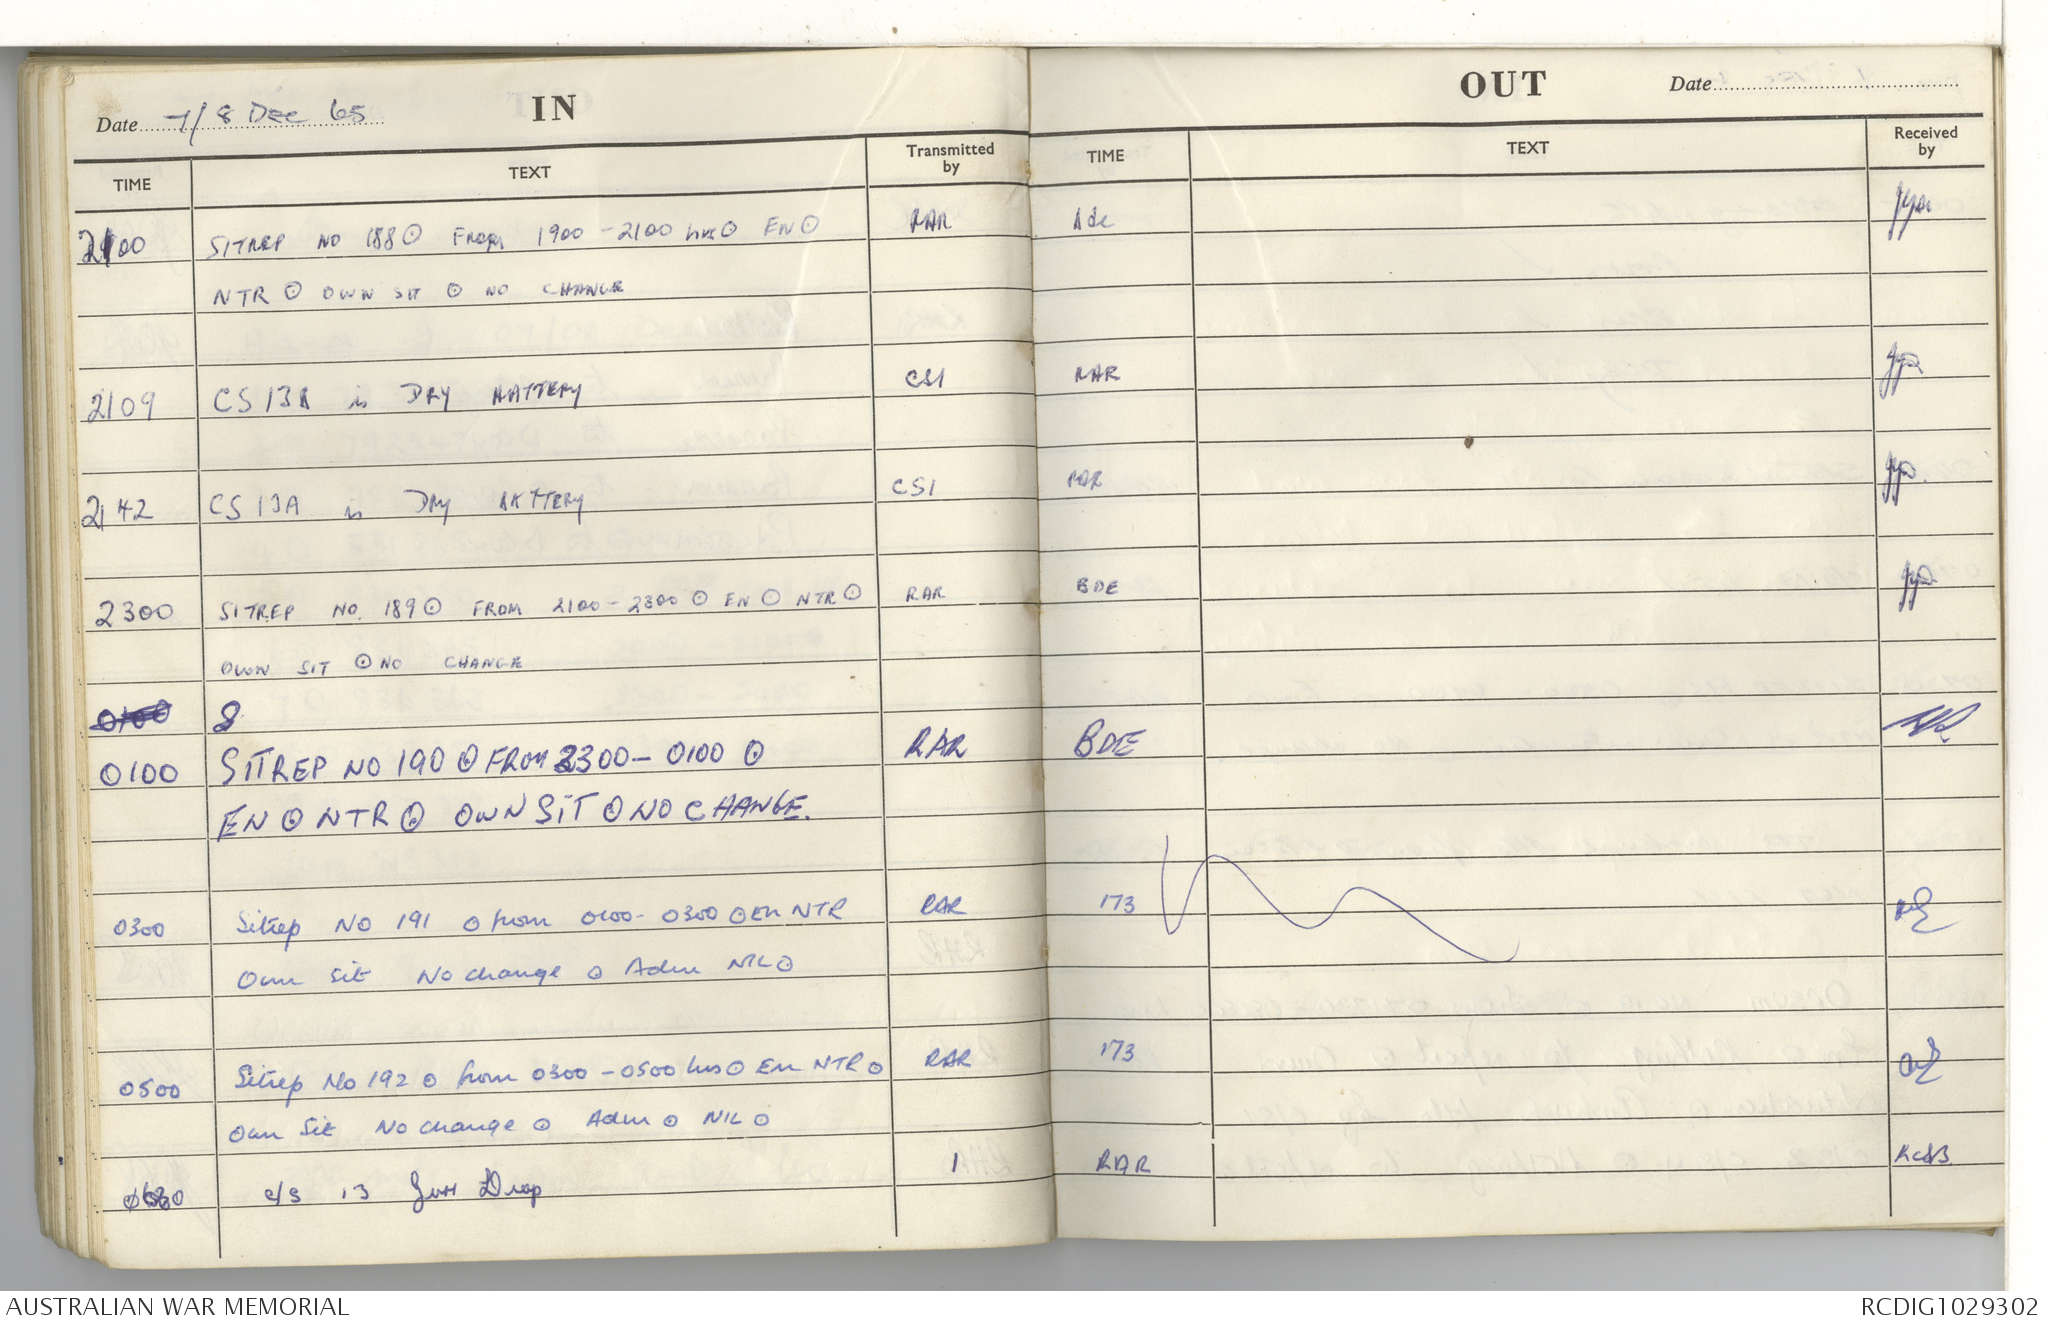 IN
Date 7/8 Dec 65
OUT
Date
TIME TEXT Transmitted by TIME TEXT Received by
2100 SITREP NO 188 ⊙ FROM 1900 - 2100 hrs ⊙ EN ⊙ RAR Bde
NTR ⊙ OWN SIT ⊙ NO CHANGE
2109 CS 13A is DRY BATTERY CS1 RAR
2142 CS 13A is DRY BATTERY CS1 RAR
2300 SITREP NO. 189 ⊙ FROM 2100 - 2300 ⊙ EN ⊙ NTR ⊙ RAR BDE
OWN SIT ⊙ NO CHANGE
0100 S
0100 SITREP NO 190 ⊙ FROM 2300 - 0100 ⊙ RAR BDE
EN ⊙ NTR ⊙ OWN SIT ⊙ NO CHANGE.
0300 Sitrep NO 191 ⊙ from 0100 - 0300 ⊙ En NTR RAR 173
Own Sit No change ⊙ Adm NIL ⊙
0500 Sitrep No 192 ⊙ from 0300 - 0500 hrs ⊙ En NTR ⊙ RAR 173
Own Sit No change ⊙ Adm ⊙ NIL ⊙
c/s 13 Drop 1 RAR
AUSTRALIAN WAR MEMORIAL
RCDIG1029302